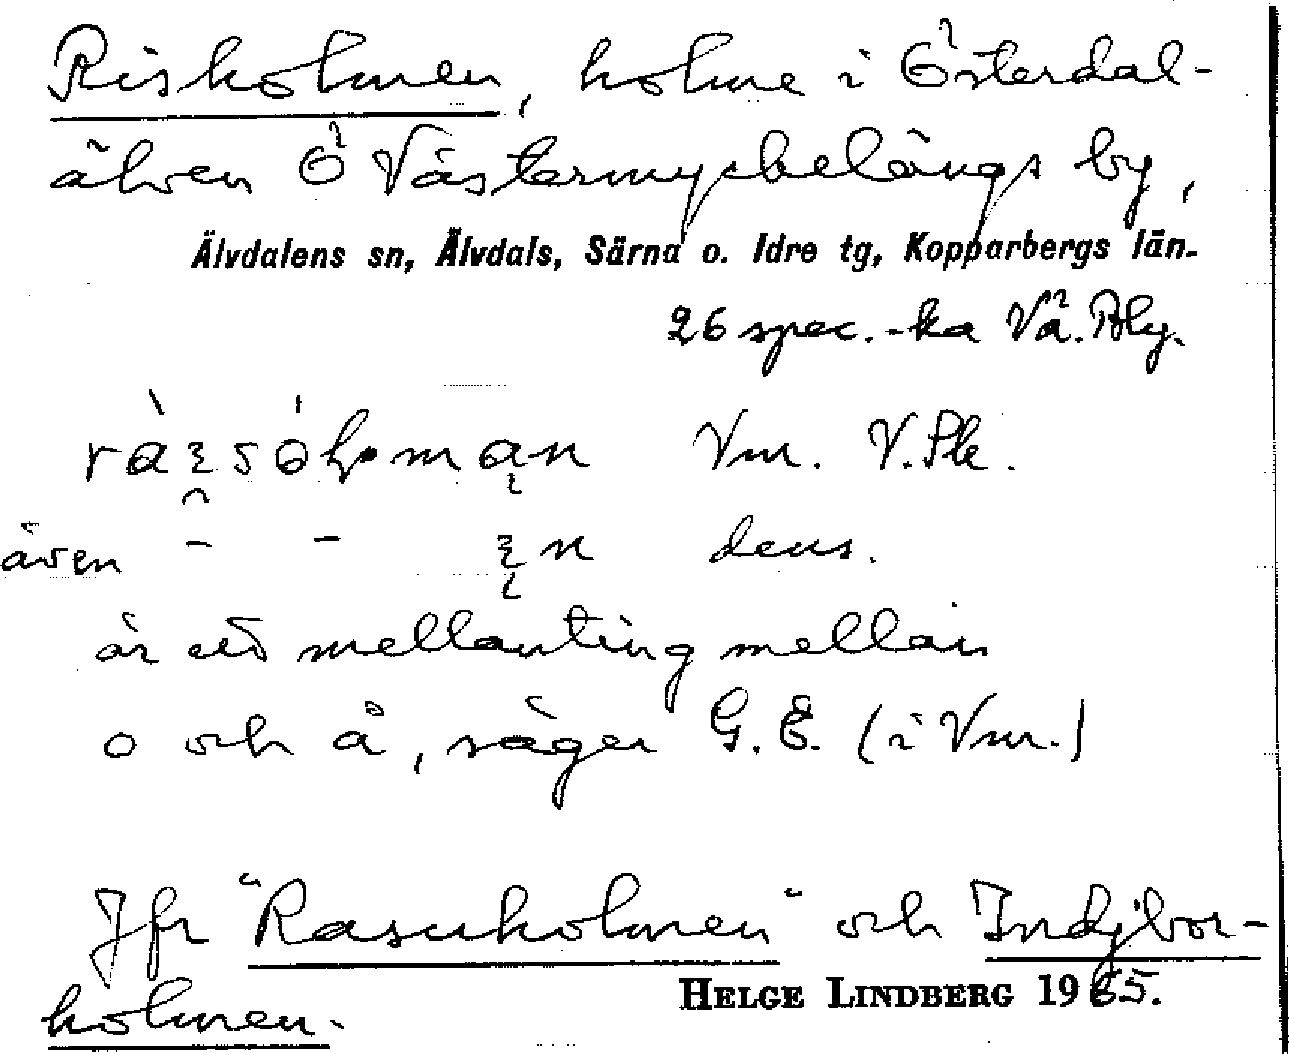 Risholmen, holme i Österdal-
älven Ö Västermyckelängs by,
Älvdalens sn, Älvdals, Särna o. Idre tg, Kopparbergs län.
26 spec.-ka Vä. Bly.
Vm. V.
även - - dens.
är ett mellanting mellan
o och å, säger G.E. (i Vm.)
Jfr "Rasuholmen" och Indjbor-
holmen.
HELGE LINDBERG 1965.